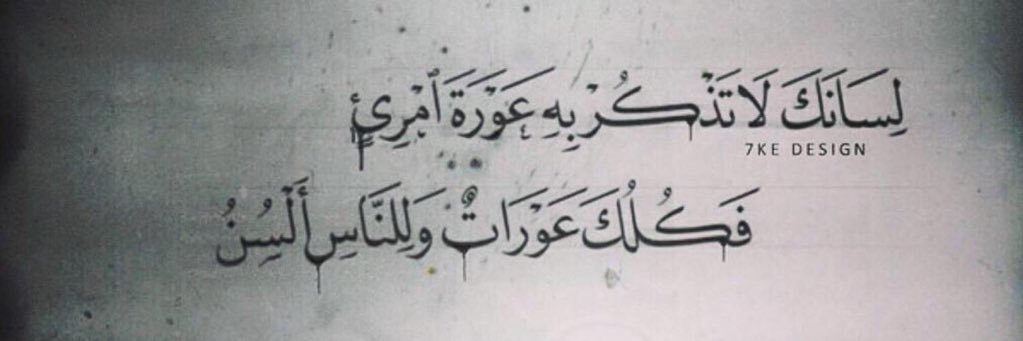 لِسَانَكَ لَا تَذْكُرْ بِهِ عَوْرَةَ ٱمْرِئٍ
7KE DESIGN
فَكُلُكَ عَوْرَاتٌ وَلِلنَّاسِ أَلْسُنُ